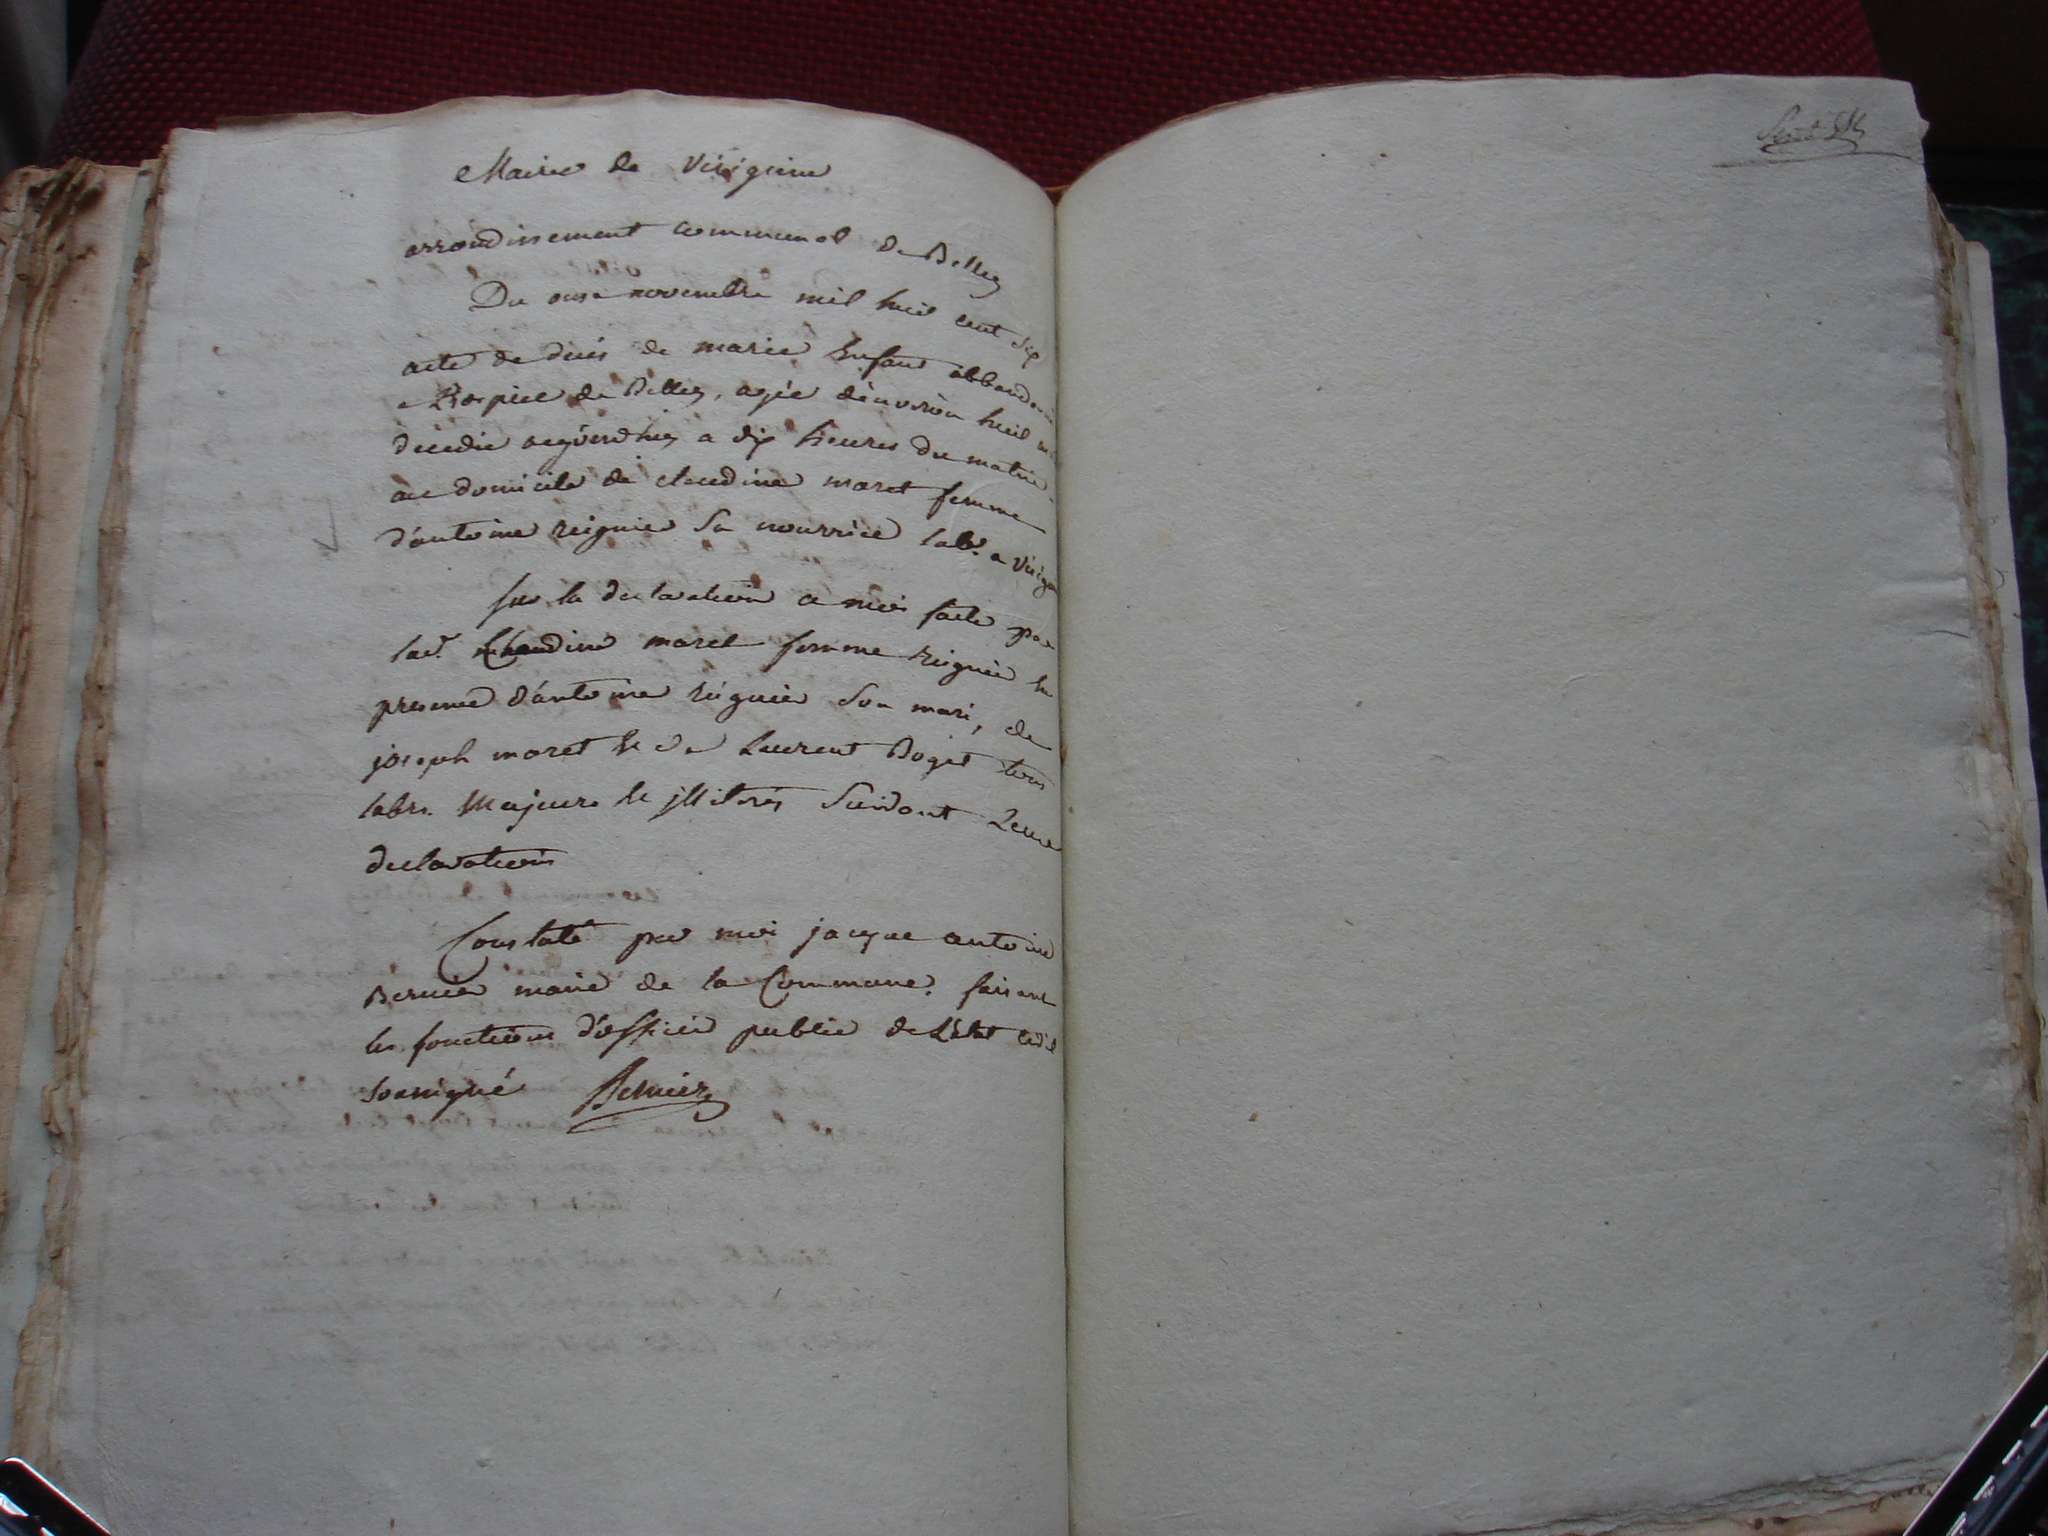 Mairie de Virignin
arrondissement communal de Belley
Du onze novembre mil huit cent six
acte de décés de marie Enfant abbandonné
hospice de Belley, agée d'environ huit
décedée aujourdhuy a dix heures du matin
au domicile de claudine maret femme
d'antoine reignier Sa nourrice labr. a Virignin
sur la declaration a moi faite par
lad. Claudine maret femme reignier En
presence d'antoine reignier Son mari, de
joseph maret Et de Laurent Boget tous
labrs. Majeurs Et jllitérés Suivant Leur
declarations
Constaté par moi jacque antoine
Bernier maire de la Commune. faisant
les fonctions d'officier public de L'état Civil
soussigné Bernier